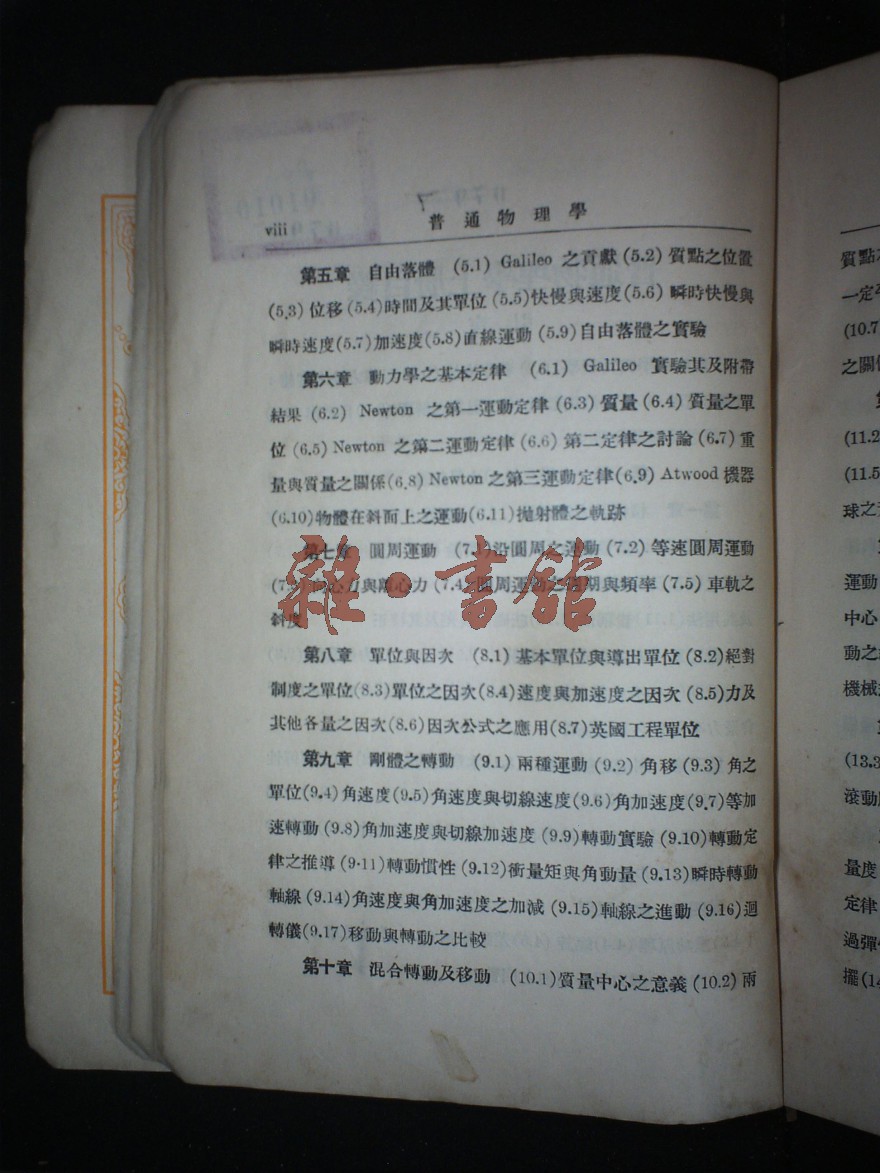 viii
普通物理學
第五章 自由落體 (5.1) Galileo 之貢獻 (5.2) 質點之位置
(5.3) 位移 (5.4) 時間及其單位 (5.5) 快慢與速度 (5.6) 瞬時快慢與
瞬時速度 (5.7) 加速度 (5.8) 直線運動 (5.9) 自由落體之實驗
第六章 動力學之基本定律 (6.1) Galileo 實驗其及附帶
結果 (6.2) Newton 之第一運動定律 (6.3) 質量 (6.4) 質量之單
位 (6.5) Newton 之第二運動定律 (6.6) 第二定律之討論 (6.7) 重
量與質量之關係 (6.8) Newton 之第三運動定律 (6.9) Atwood 機器
(6.10) 物體在斜面上之運動 (6.11) 拋射體之軌跡
第七章 圓周運動 (7.1) 沿圓周之運動 (7.2) 等速圓周運動
(7.3) 向心力與離心力 (7.4) 圓周運動之週期與頻率 (7.5) 車軌之
斜度
雜·書館
第八章 單位與因次 (8.1) 基本單位與導出單位 (8.2) 絕對
制度之單位 (8.3) 單位之因次 (8.4) 速度與加速度之因次 (8.5) 力及
其他各量之因次 (8.6) 因次公式之應用 (8.7) 英國工程單位
第九章 剛體之轉動 (9.1) 兩種運動 (9.2) 角移 (9.3) 角之
單位 (9.4) 角速度 (9.5) 角速度與切線速度 (9.6) 角加速度 (9.7) 等加
速轉動 (9.8) 角加速度與切線加速度 (9.9) 轉動實驗 (9.10) 轉動定
律之推導 (9·11) 轉動慣性 (9.12) 衝量矩與角動量 (9.13) 瞬時轉動
軸線 (9.14) 角速度與角加速度之加減 (9.15) 軸線之進動 (9.16) 迴
轉儀 (9.17) 移動與轉動之比較
第十章 混合轉動及移動 (10.1) 質量中心之意義 (10.2) 兩
質點
一定
(10.7
之關
(11.2
(11.5
球之
運動
中心
動之
機械
(13.3
滾動
量度
定律
過彈
擺 (14